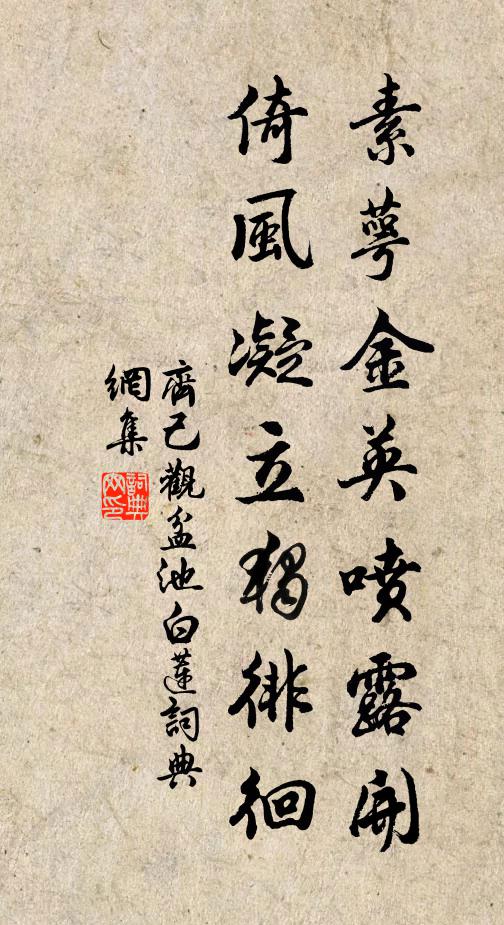 素萼金英噴露開
倚風凝立獨徘徊
齊己觀盆池白蓮詞典
網集
詞典
网印